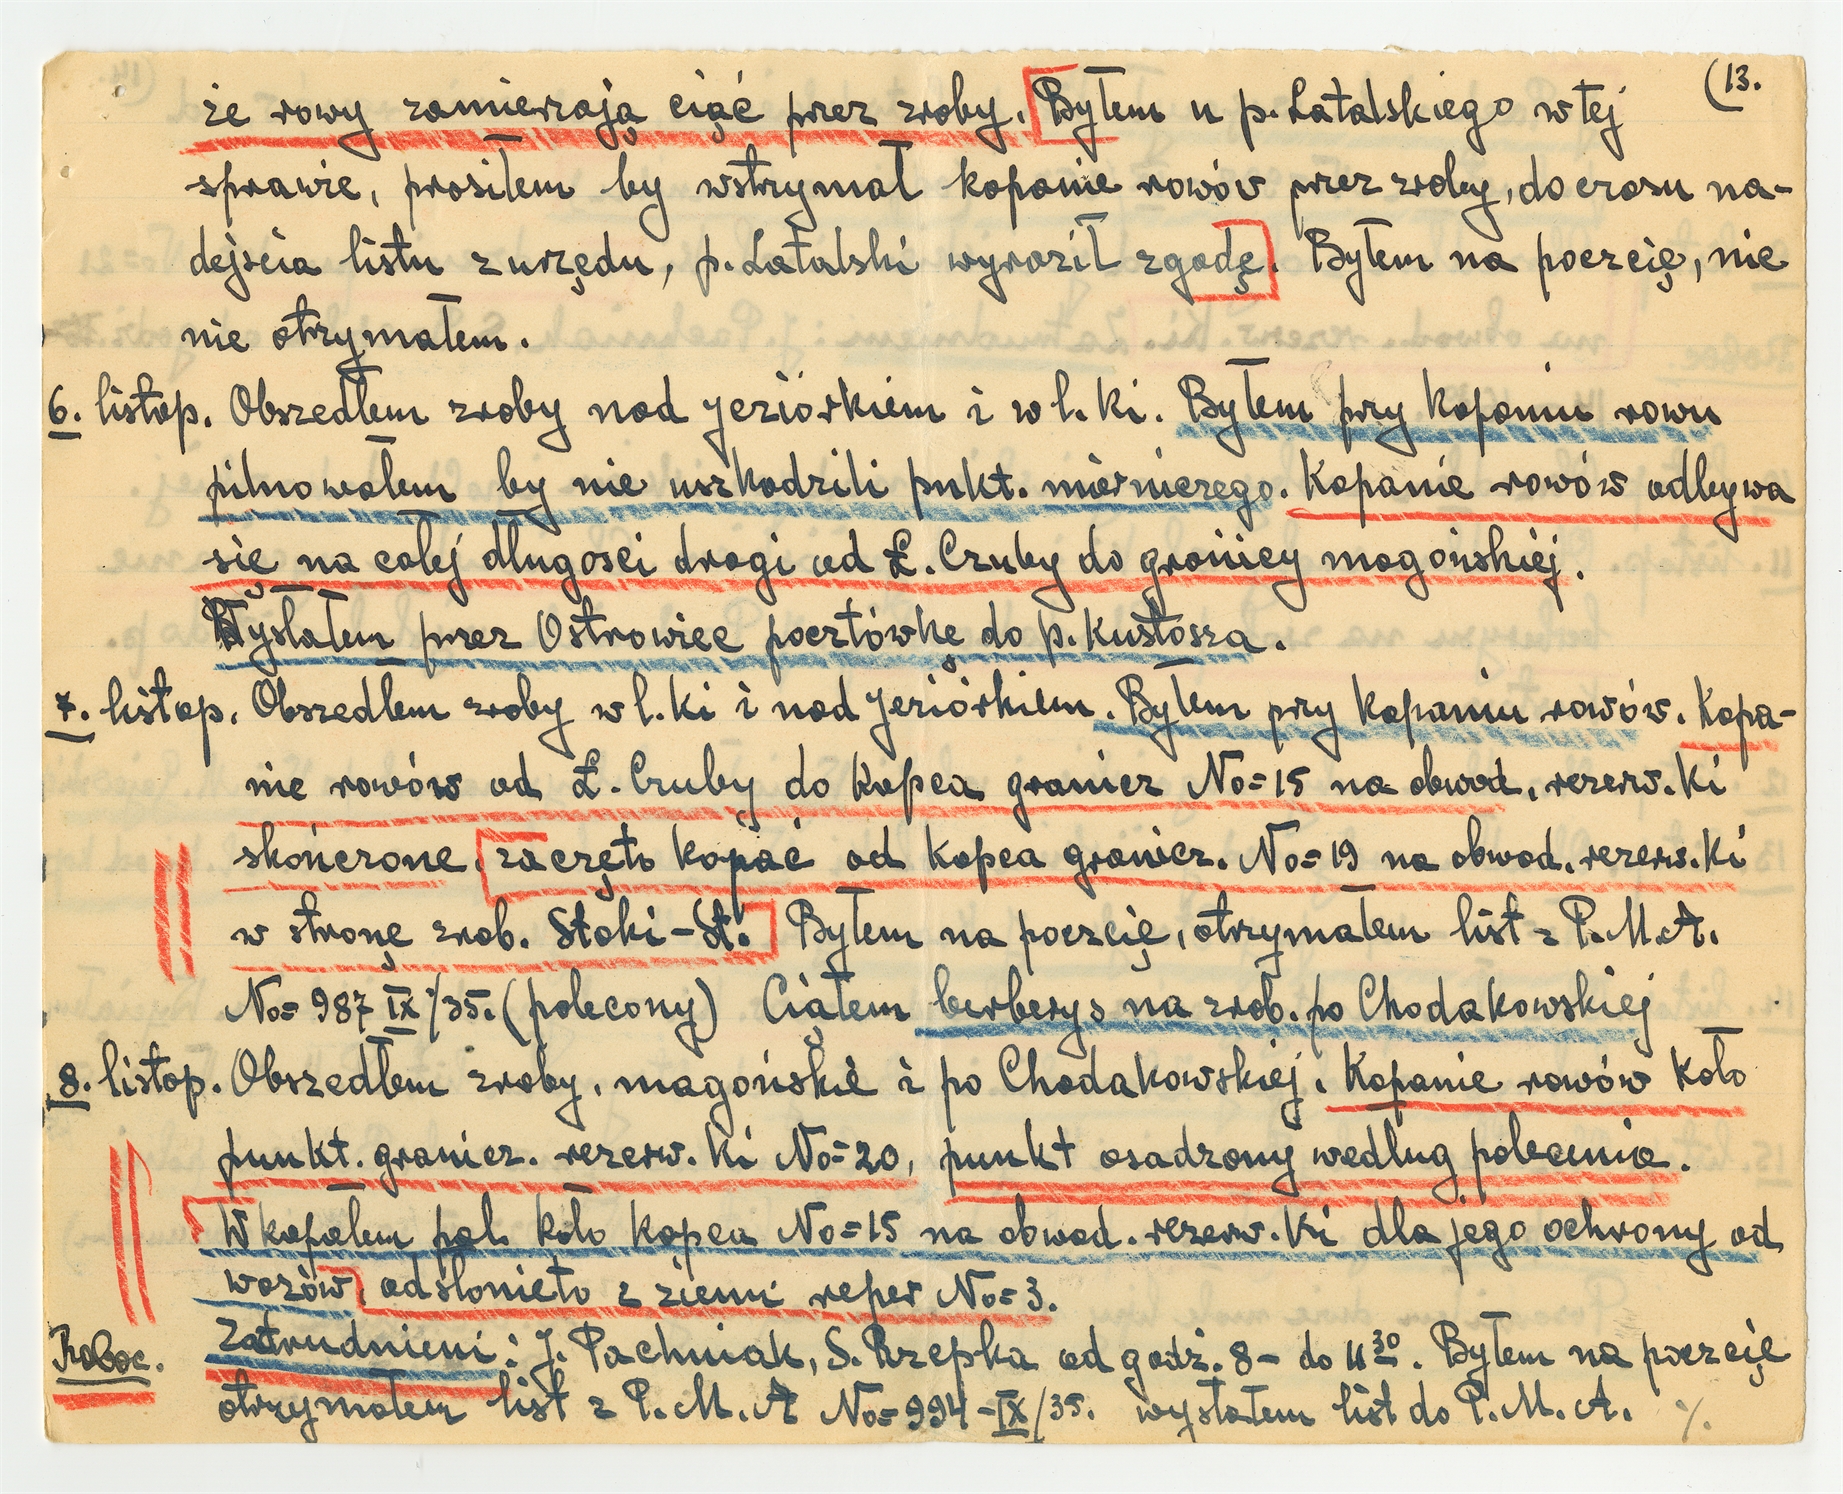 (13.
że rowy zamierzają ciąć przez zroby. Byłem u p. Latalskiego w tej
sprawie, prosiłem by wstrzymał kopanie rowów przez zroby, do czasu na-
dejścia listu z urzędu, p. Latalski wyraził zgodę. Byłem na poczcię, nic
nie otrzymałem.
6. listop. Obszedłem zroby nad jeziórkiem i w l. Ki. Byłem przy kopaniu rowu
pilnowałem by nie uszkodzili pukt. mierniczego. Kopanie rowów odbywa
się na całej długości drogi od Ł. Czuby do granicy magońskiej.
Wysłałem przez Ostrowiec pocztówkę do p. Kustosza.
7. listop. Obszedłem zroby w l. Ki i nad jeziórkiem. Byłem przy kopaniu rowów. Kopa-
nie rowów od Ł. Czuby do kopca granicz No=15 na obwod. rezerw. Ki
skończone, zaczęto kopać od kopca granicz. No=19 na obwod. rezerw. Ki
w stronę zrob. Stoki-St. Byłem na poczcię, otrzymałem list z P.M.A.
No=987 IX/35. (polecony) Ciąłem berberys na zrob. po Chodakowskiej
8. listop. Obszedłem zroby, magońskie i po Chodakowskiej. Kopanie rowów koło
punkt. granicz. rezerw. Ki No=20, punkt osadzony według polecenia.
Wkopałem pal koło kopca No=15 na obwod. rezerw. Ki dla jego ochrony od
wozów, odsłonięto z ziemi reper No=3.
Roboc. Zatrudnieni: J. Pachniak, S. Rzepka od godz. 8- do 11 30. Byłem na poczcię
otrzymałem list z P.M.A No=994-IX/35. wysłałem list do P.M.A. ./.